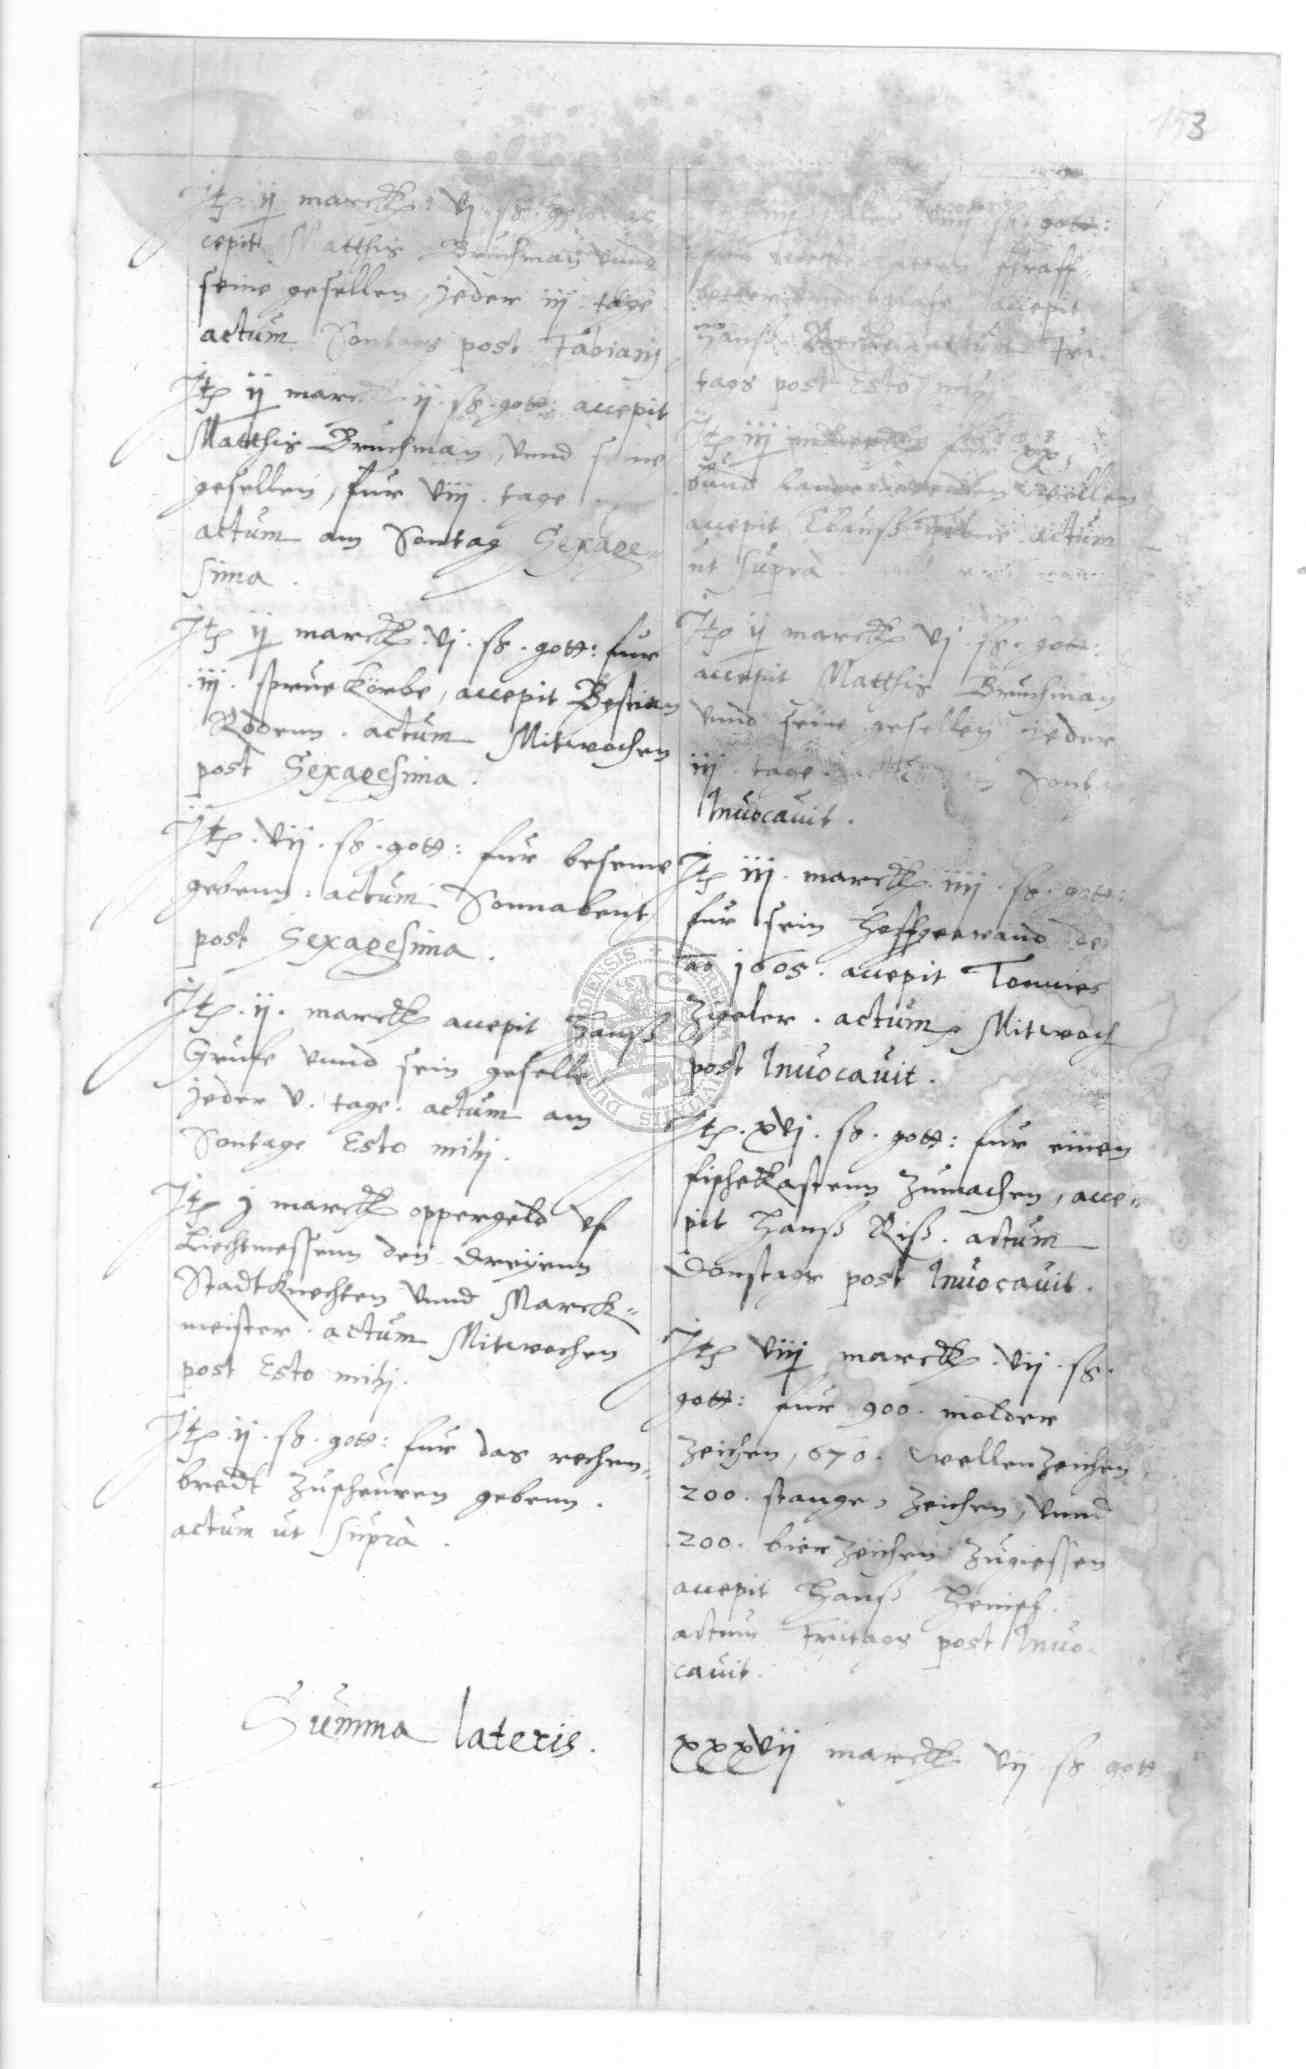 153
Jtem ij marck: vj. ß. gott: ac
cepit Matthis Bruchman vnnd
seine gesellen, jeder iij tage
actum Sontags post Fabianj
Jtem ij marck ij. ß. gott: accepit
Matthis Bruchman, vnnd seine
gesellen, fur viij. tage
actum am Sontag Sexage-
sima.
Jtem ij marck. vj. ß. gott: fur
iij. sprue körbe, accepit Bestian
Rodenn. actum Mitwochen
post Sexagesima.
Jtem. vij. ß. gott: fur beseme
gebenn. actum Sonnabent
post Sexagesima.
Jtem. ij. marck accepit Hanß
Grube vnnd sein geselle
jeder v. tage. actum am
Sontage Esto mihj.
Jtem j marck oppergeld vf
Liechtmessenn den dreyenn
Stadtknechten vnnd Marck-
meister. actum Mitwochen
post Esto mihj.
Jtem. ij. ß. gott: fur das rechen-
bredt zuscheuren gebenn.
actum ut supra.
Summa lateris.
gott:
accepit
Hanß actum Fri-
tags post Esto mihj
Jtem iij
vnnd wellen
accepit Clauß actum
ut supra
Jtem ij marck vj. ß. gott:
accepit Matthis Bruchman
vnnd seine gesellen jeder
iij. tage. Sontags
Invocavit.
Jtem iij. marck. iiij. ß. gott:
fur sein hoffgewand de
ao 1605. accepit Tonnies
Zigeler. actum Mitwoch
post Invocavit.
Jtem. xvj. ß. gott: fur einen
fischekastenn zumachen, acce-
pit Hanß Riß. actum
Donstags post Invocavit.
Jtem viij marck. vij. ß.
gott: fur 900. molder
zeichen, 670. wellenzeichen
200. stange zeichen, vnnd
200. bier zeichen zugiessen
accepit Hanß
actum Fritags post Invo-
cavit.
xxxvij marck vij ß gott